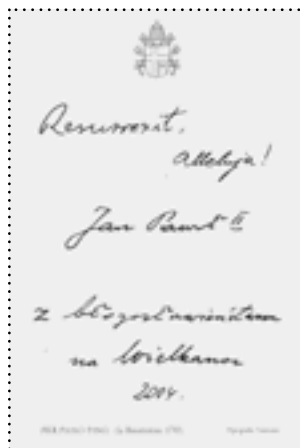 Resurrexit,
Alleluja!
Jan Paweł II
z błogosławieństwem
na Wielkanoc
2004.